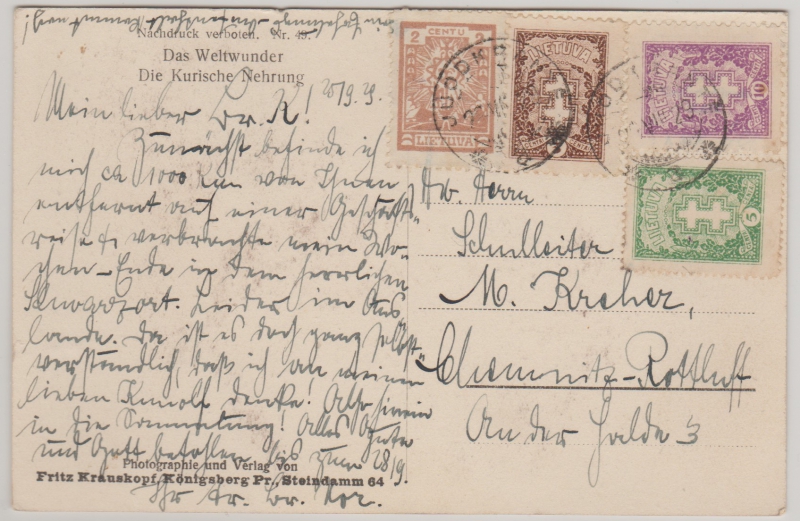 Nachdruck verboten. Nr. 49.
Das Weltwunder
Die Kurische Nehrung
20/9.29.
Mein lieber Br. K!
Zunächst befinde ich
mich ca 1000 Km von Ihnen
entfernt auf einer Geschäfts-
reise & verbrachte mein Wo-
chen-Ende in dem herrlichen
leider im Aus
lande. Da ist es doch ganz selbst-
verständlich, daß ich an meinen
lieben denke! Also hinein
in die Sammlung! Alles Gute
und Gott befohlen bis zum 28/9.
Ihr tr. Br.
Photographie und Verlag von
Fritz Krauskopf, Königsberg Pr., Steindamm 64
2 CENTU 2
LIETUVA
LIETUVA
LIETUVA
10
LIETUVA
5
Herrn
Schulleiter
M. Kreher,
Chemnitz-Rottluff
An der Halde 3